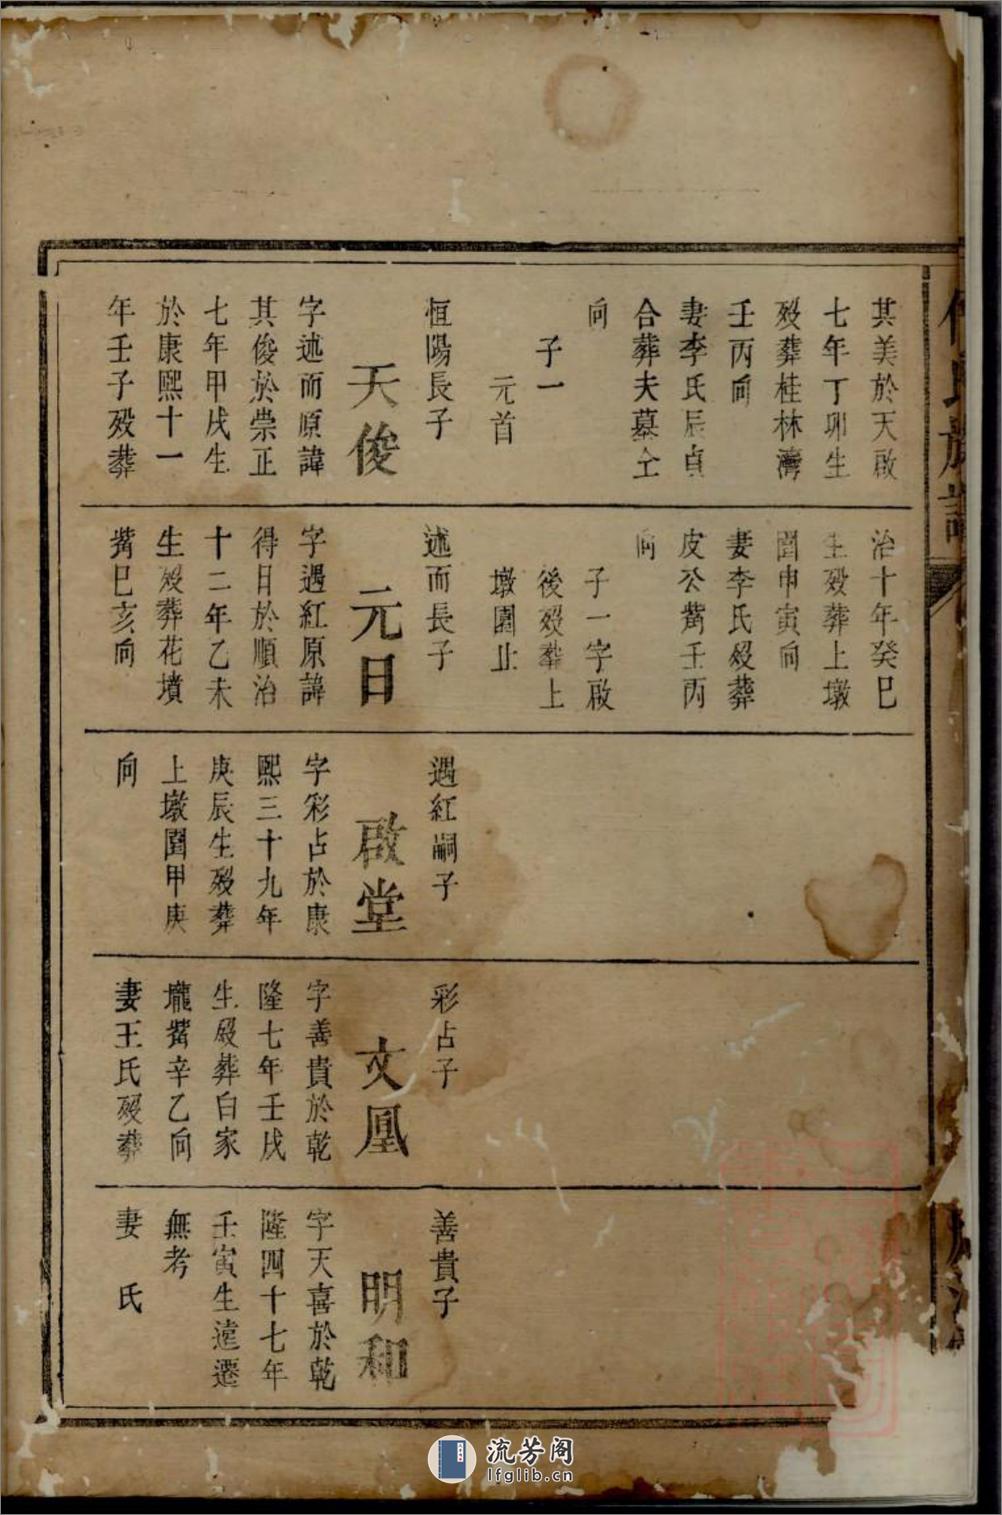 其美於天啟
七年丁卯生
歿葬桂林灣
壬丙向
妻李氏辰貞
合葬夫墓仝
向
子一
元首
恒陽長子
天俊
字述而原諱
其俊於崇正
七年甲戌生
於康熙十一
年壬子歿葬
治十年癸巳
生歿葬上墩
園申寅向
妻李氏歿葬
皮公嘴壬丙
向
子一字啟
後歿葬上
墩園止
述而長子
元日
字遇紅原諱
得日於順治
十二年乙未
生歿葬花墳
嘴巳亥向
遇紅嗣子
啟堂
字彩占於康
熙三十九年
庚辰生歿葬
上墩園甲庚
向
彩占子
文鳳
字善貴於乾
隆七年壬戌
生歿葬白家
壠嘴辛乙向
妻王氏歿葬
善貴子
明和
字天喜於乾
隆四十七年
壬寅生遠遷
無考
妻 氏
氏族譜
流芳阁
lfglib.cn